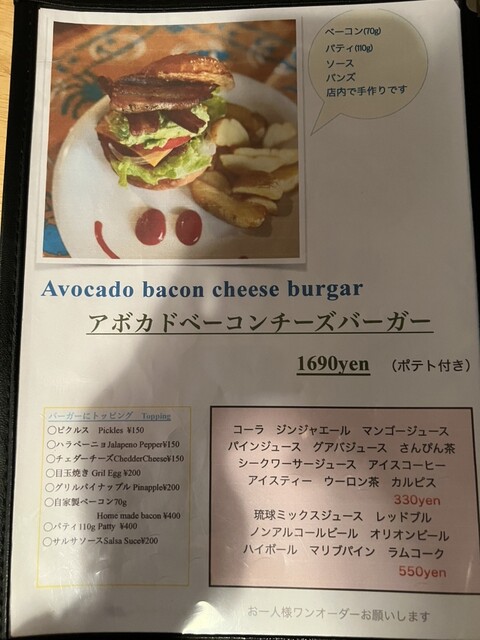 ベーコン(70g)
パティ(110g)
ソース
バンズ
店内で手作りです
Avocado bacon cheese burgar
アボカドベーコンチーズバーガー
1690yen （ポテト付き）
バーガーにトッピング Topping
〇ピクルス Pickles ¥150
〇ハラペーニョJalapeno Pepper¥150
〇チェダーチーズChedderCheese¥150
〇目玉焼き Gril Egg ¥200
〇グリルパイナップル Pinapple¥200
〇自家製ベーコン70g
Home made bacon ¥400
〇パティ110g Patty ¥400
〇サルサソースSalsa Suce¥200
コーラ ジンジャエール マンゴージュース
パインジュース グアバジュース さんぴん茶
シークワーサージュース アイスコーヒー
アイスティー ウーロン茶 カルピス
330yen
琉球ミックスジュース レッドブル
ノンアルコールビール オリオンビール
ハイボール マリブパイン ラムコーク
550yen
お一人様ワンオーダーお願いします